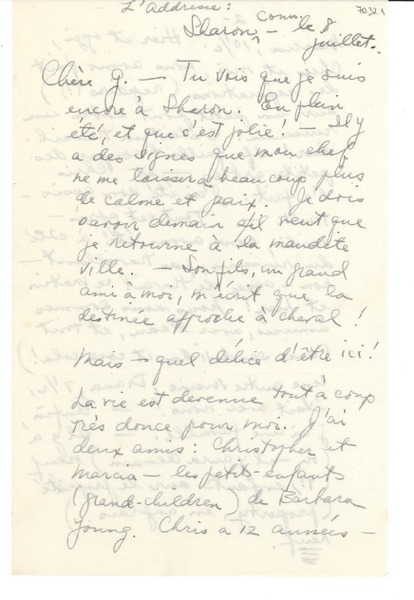 L'addresse: 70321
à
Sharon, Conn. – le 8
juillet.
Chère G. – Tu vois que je suis
encore à Sharon. En plein
été, et que c'est jolie! – Il y
a des signes que mon chef
ne me laissera beaucoup plus
de calme et paix. Je dois
savoir demain s'il veut que
je retourne à la maudite
ville. – Son fils, un grand
ami à moi, m'écrit que la
destinée approche à cheval!
Mais – quel délice d'être ici!
La vie est devenue tout à coup
très douce pour moi. J'ai
deux amis: Christopher et
Marcia – les petits-enfants
(grand-children) de Barbara
Young. Chris a 12 années –